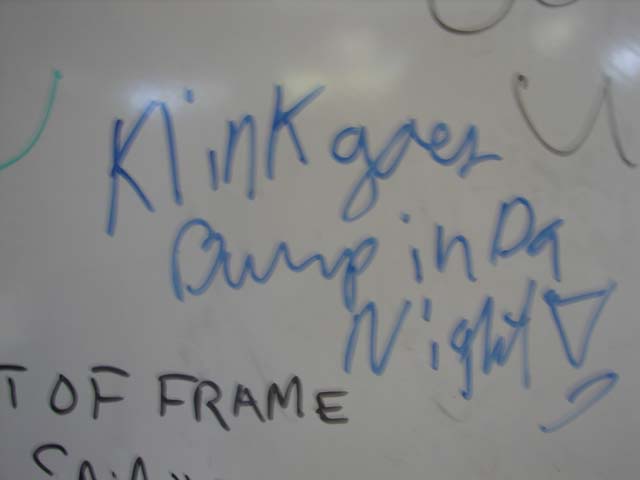 Klink goes
Bump in Da
Night!
T OF FRAME